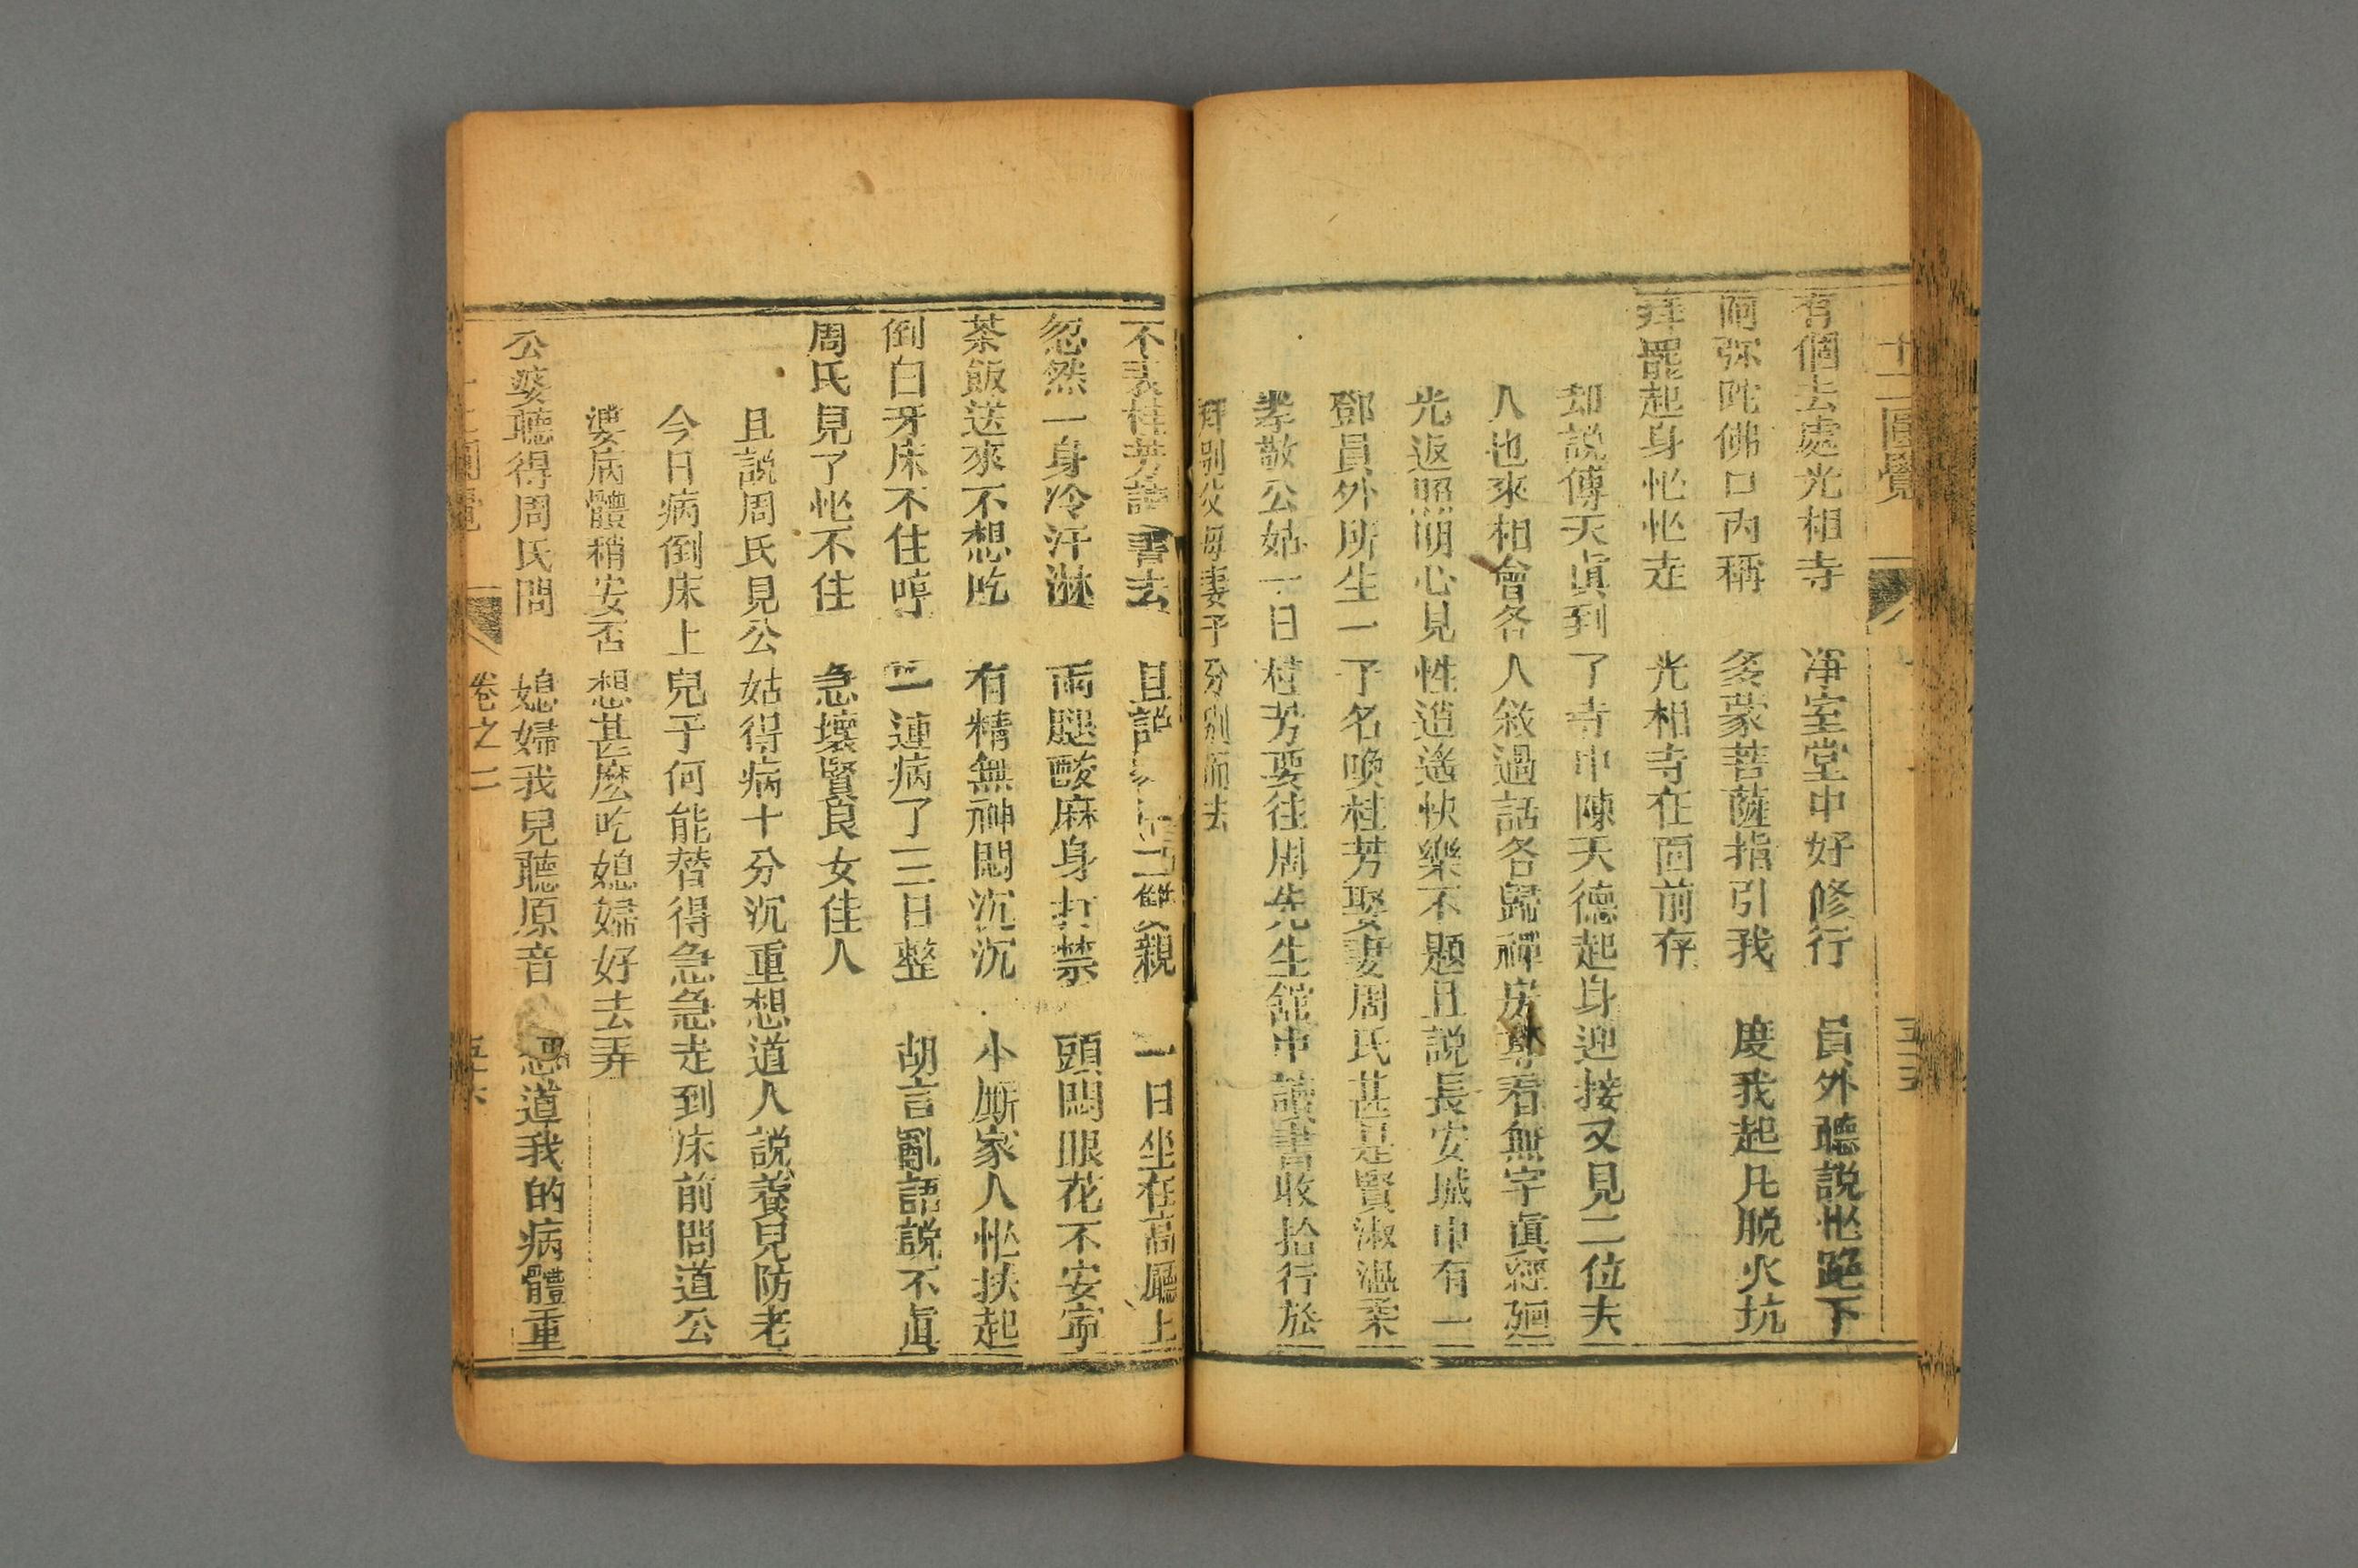 十二圓覺 五十五
有個去處光相寺 凈室堂中好修行 員外聽説忙跪下
阿弥陀佛口內稱 多蒙菩薩指引我 度我起凡脱火坑
拜罷起身忙忙走 光相寺在面前存
却説傅天真到了寺中陳天德起身迎接又見二位夫
人也來相會各人敘過話各歸禪房專看無字真經廻
光返照明心見性逍遙快樂不題且説長安城中有一
鄧員外所生一子名喚桂芳娶妻周氏甚是賢淑溫柔
孝敬公姑一日桂芳要往周先生舘中讀書收拾行於
拜别父母妻子分别而去
不表桂芳讀書去 且説 二雙親 一日坐在高廳上
忽然一身冷汗淋 兩腿酸麻身打禁 頭悶眼花不安寧
茶飯送來不想吃 有精無神悶沉沉 小厮家人忙扶起
倒白牙床不住哼 一連病了三日整 胡言亂語説不真
周氏見了忙不住 急壞賢良女佳人
且説周氏見公姑得病十分沉重想道人説養兒防老
今日病倒床上兒子何能替得急急走到床前問道公
婆病體稍安否想甚麽吃媳婦好去弄
公婆聽得周氏問 媳婦我兒聽原音 想道我的病體重
十二圓覺 卷之二 五十六